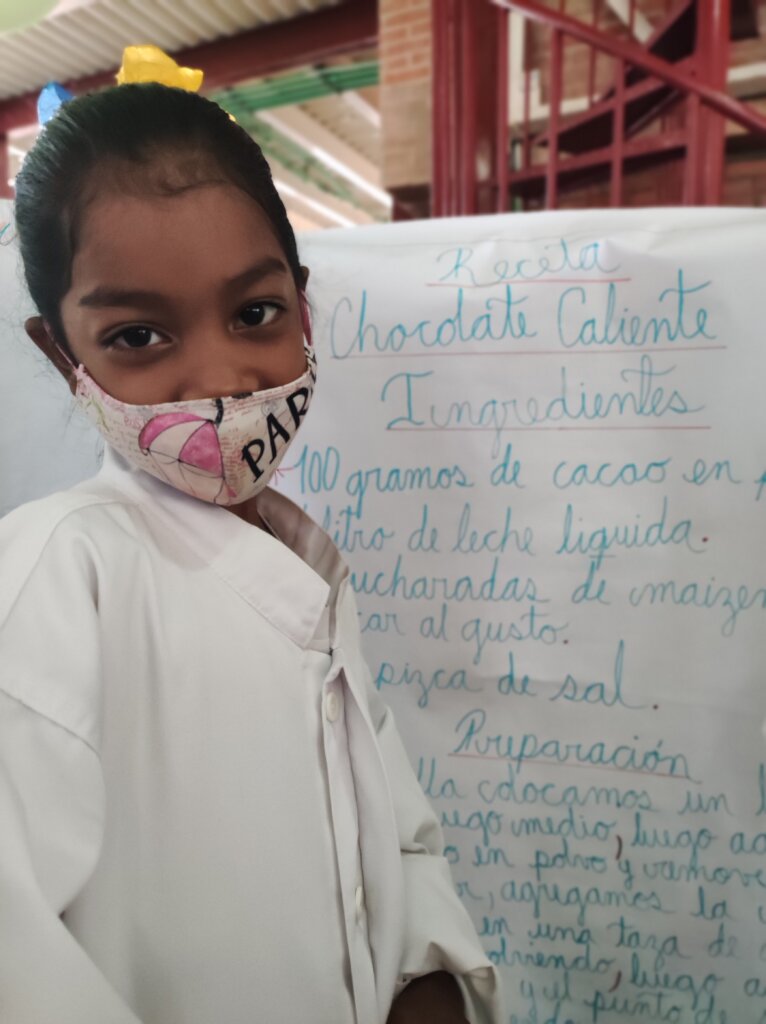 Receta
Chocolate Caliente
Iingredientes
100 gramos de cacao en
litro de leche liquida.
ucharadas de maizen
car al gusto.
pizca de sal.
Preparación
lla colocamos un
uego medio, luego ag
o en polvo y vamos
or, agregamos la
en una taza de
olviendo, luego a
y el punto de
PAR